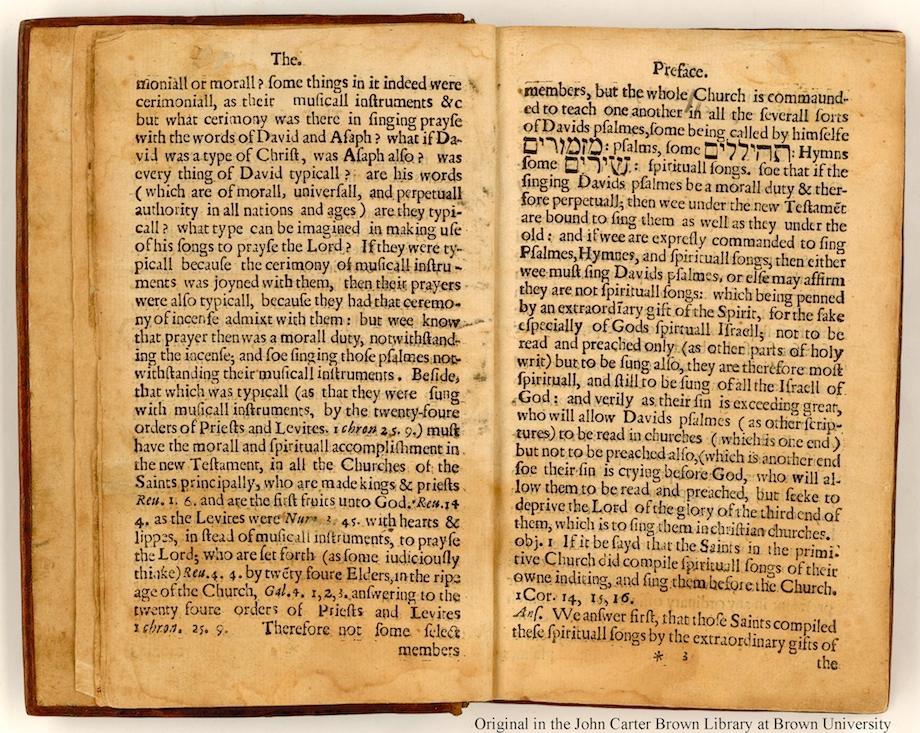 The.
moniall or morall? some things in it indeed were
cerimoniall, as their musicall instruments &c
but what cerimony was there in singing prayse
with the words of David and Asaph? what if Da-
vid was a type of Christ, was Asaph also? was
every thing of David typicall? are his words
(which are of morall, universall, and perpetuall
authority in all nations and ages) are they typi-
call? what type can be imagined in making use
of his songs to prayse the Lord? If they were ty-
picall because the cerimony of musicall instru-
ments was joyned with them, then their prayers
were also typicall, because they had that ceremo-
ny of incense admixt with them: but wee know
that prayer then was a morall duty, notwithstand-
ing the incense; and soe singing those psalmes not-
withstanding their musicall instruments. Beside,
that which was typicall (as that they were sung
with musicall instruments, by the twenty-foure
orders of Priests and Levites. 1 chron 25. 9.) must
have the morall and spirituall accomplishment in
the new Testament, in all the Churches of the
Saints principally, who are made kings & priests
Reu. 1. 6. and are the first fruits unto God. Reu. 14
4. as the Levites were Num. 3. 45. with hearts &
lippes, in stead of musicall instruments, to prayse
the Lord; who are set forth (as some iudiciously
thinke) Reu. 4. 4. by twēty foure Elders, in the ripe
age of the Church, Gal. 4. 1, 2, 3. answering to the
twenty foure orders of Priests and Levites
1 chron. 25. 9. Therefore not some select
members
Preface.
members, but the whole Church is commaund-
ed to teach one another in all the severall sorts
of Davids psalmes, some being called by himselfe
מזמורים: psalms, some תהילליםִ: Hymns
some שירים: spirituall songs. soe that if the
singing Davids psalmes be a morall duty & ther-
fore perpetuall; then wee under the new Testamēt
are bound to sing them as well as they under the
old: and if wee are expresly commanded to sing
Psalmes, Hymnes, and spirituall songs, then either
wee must sing Davids psalmes, or else may affirm
they are not spirituall songs: which being penned
by an extraordiary gift of the Spirit, for the sake
especially of Gods spirituall Israell; not to be
read and preached only (as other parts of holy
writ) but to be sung also, they are therefore most
spirituall, and still to be sung of all the Israell of
God: and verily as their sin is exceeding great,
who will allow Davids psalmes (as other scrip-
tures) to be read in churches (which is one end)
but not to be preached also, (which is another end
soe their sin is crying before God, who will al-
low them to be read and preached, but seeke to
deprive the Lord of the glory of the third end of
them, which is to sing them in christian churches.
obj. 1 If it be sayd that the Saints in the primi-
tive Church did compile spirituall songs of their
owne inditing, and sing them before the Church.
1Cor. 14, 15, 16.
Ans. We answer first, that those Saints compiled
these spirituall songs by the extraordinary gifts of
* 3
the
Original in the John Carter Brown Library at Brown University